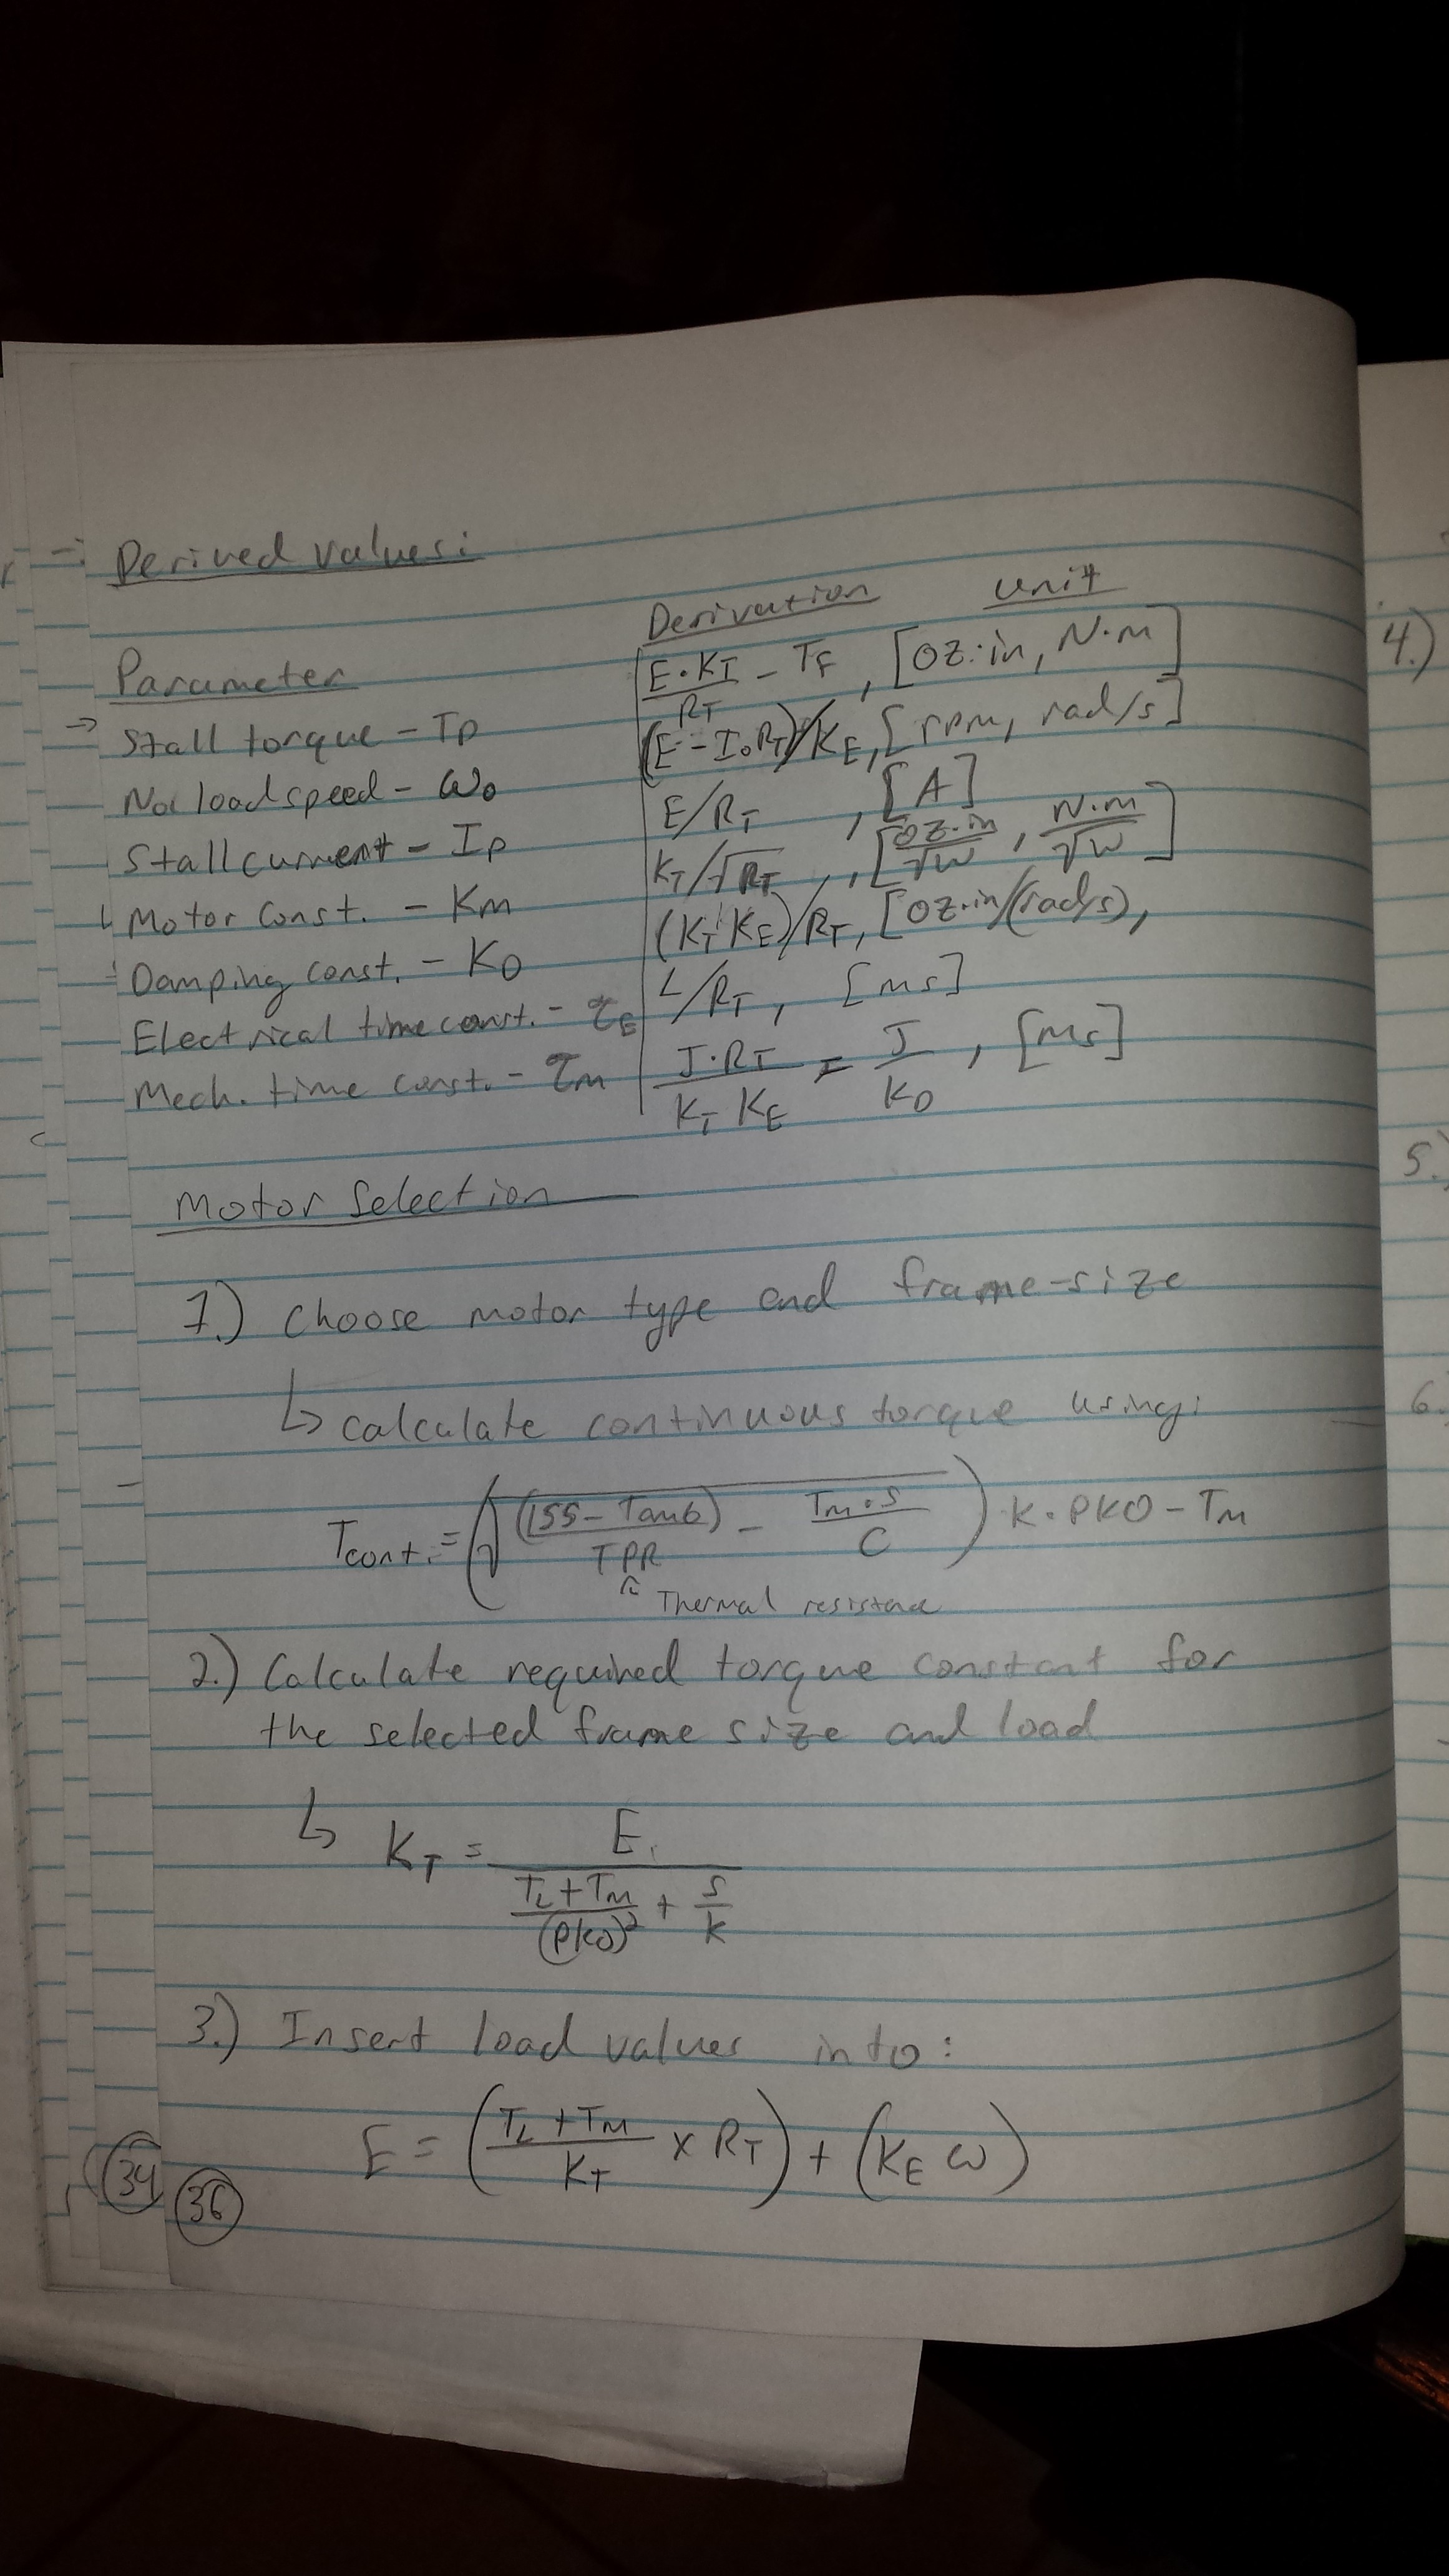 Derived values:
Parameter Derivation unit
→ Stall torque - Tp E·KT/RT - TF, [oz·in, N·m]
No load speed - ω₀ (E - I₀RT)/KE, [rpm, rad/s]
Stall current - Ip E/RT, [A]
Motor Const. - Km KT/√RT, [oz·in/√W, N·m/√W]
Damping const. - KD (KT KE)/RT, [oz·in/(rad/s),
Electrical time const. - τE L/RT, [ms]
Mech. time const. - τm J·RT/KT KE = J/KD, [ms]
Motor Selection
1.) Choose motor type and frame-size
↳ calculate continuous torque using:
Tcont. = (√(155 - Tamb)/TPR - TM·S/C) K·PKO - TM
Thermal resistance
2.) Calculate required torque constant for
the selected frame size and load
↳ KT = E/(TL + TM/(PKO)² + S/K)
3.) Insert load values into:
E = (TL + TM/KT × RT) + (KE ω)
34
36
4.)
5.)
6.